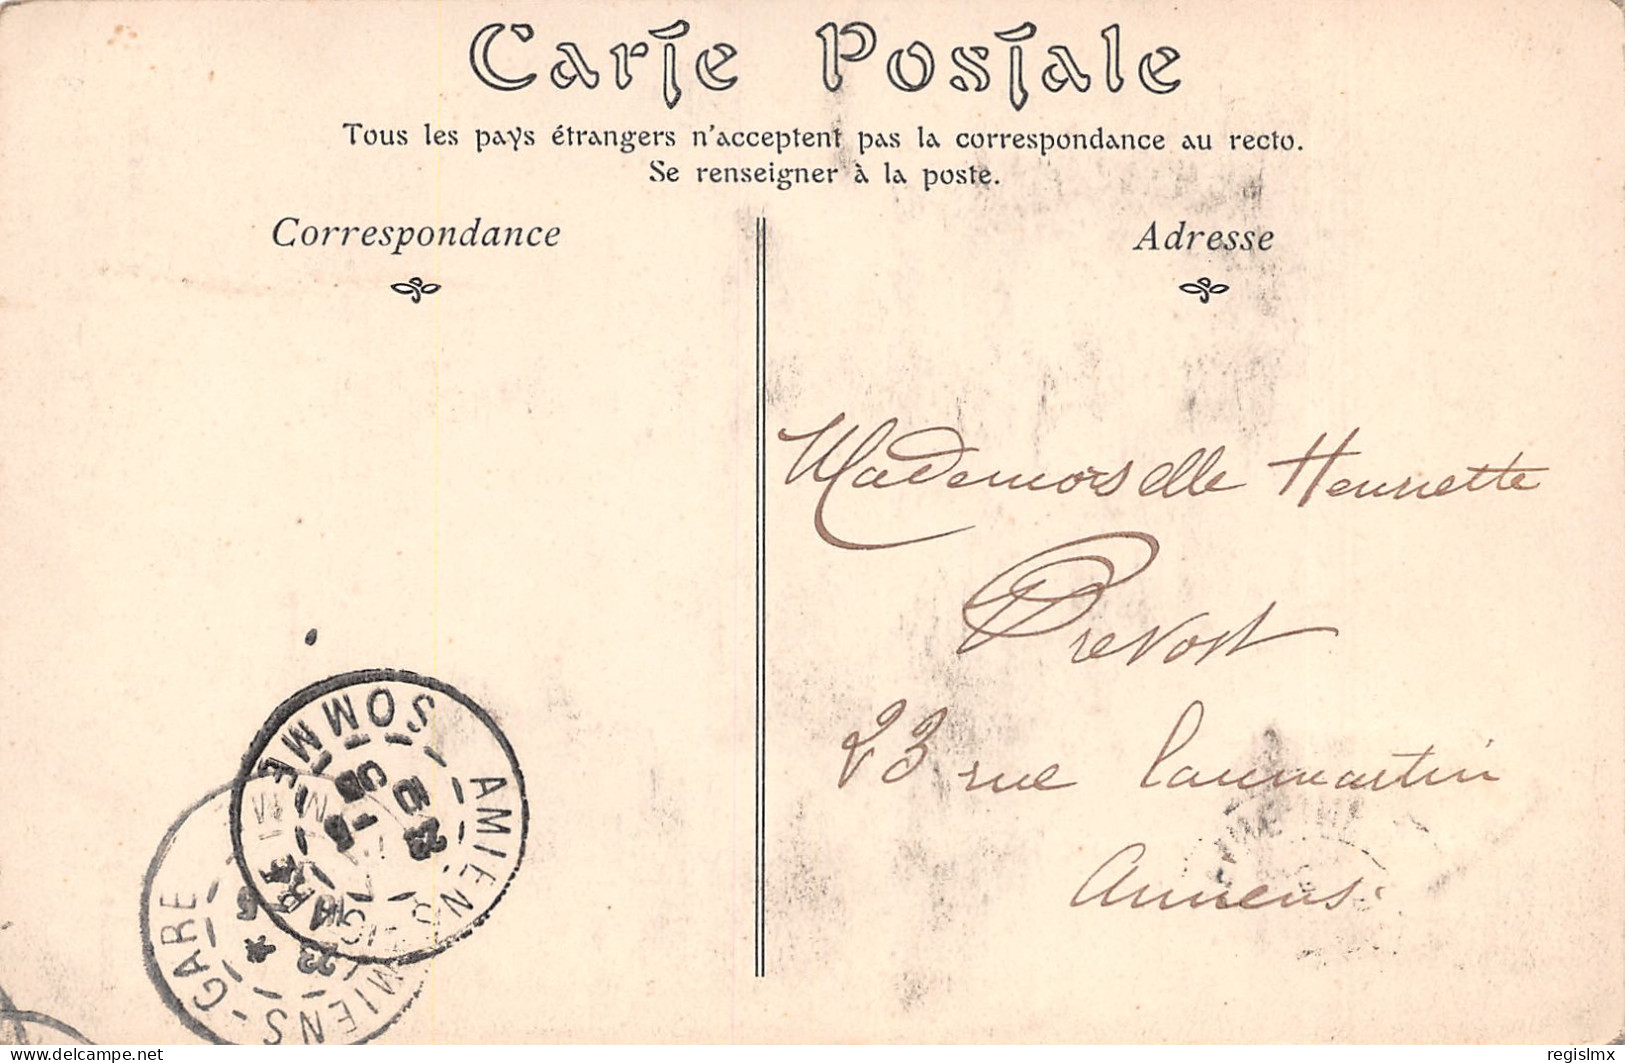 Carte Postale
Tous les pays étrangers n'acceptent pas la correspondance au recto.
Se renseigner à la poste.
Correspondance
Adresse
Mademoiselle Henriette
Prevost
23 rue Caumartin
Amiens.
AMIENS
SOMME
23
AMIENS-GARE
23
www.delcampe.net
regislmx